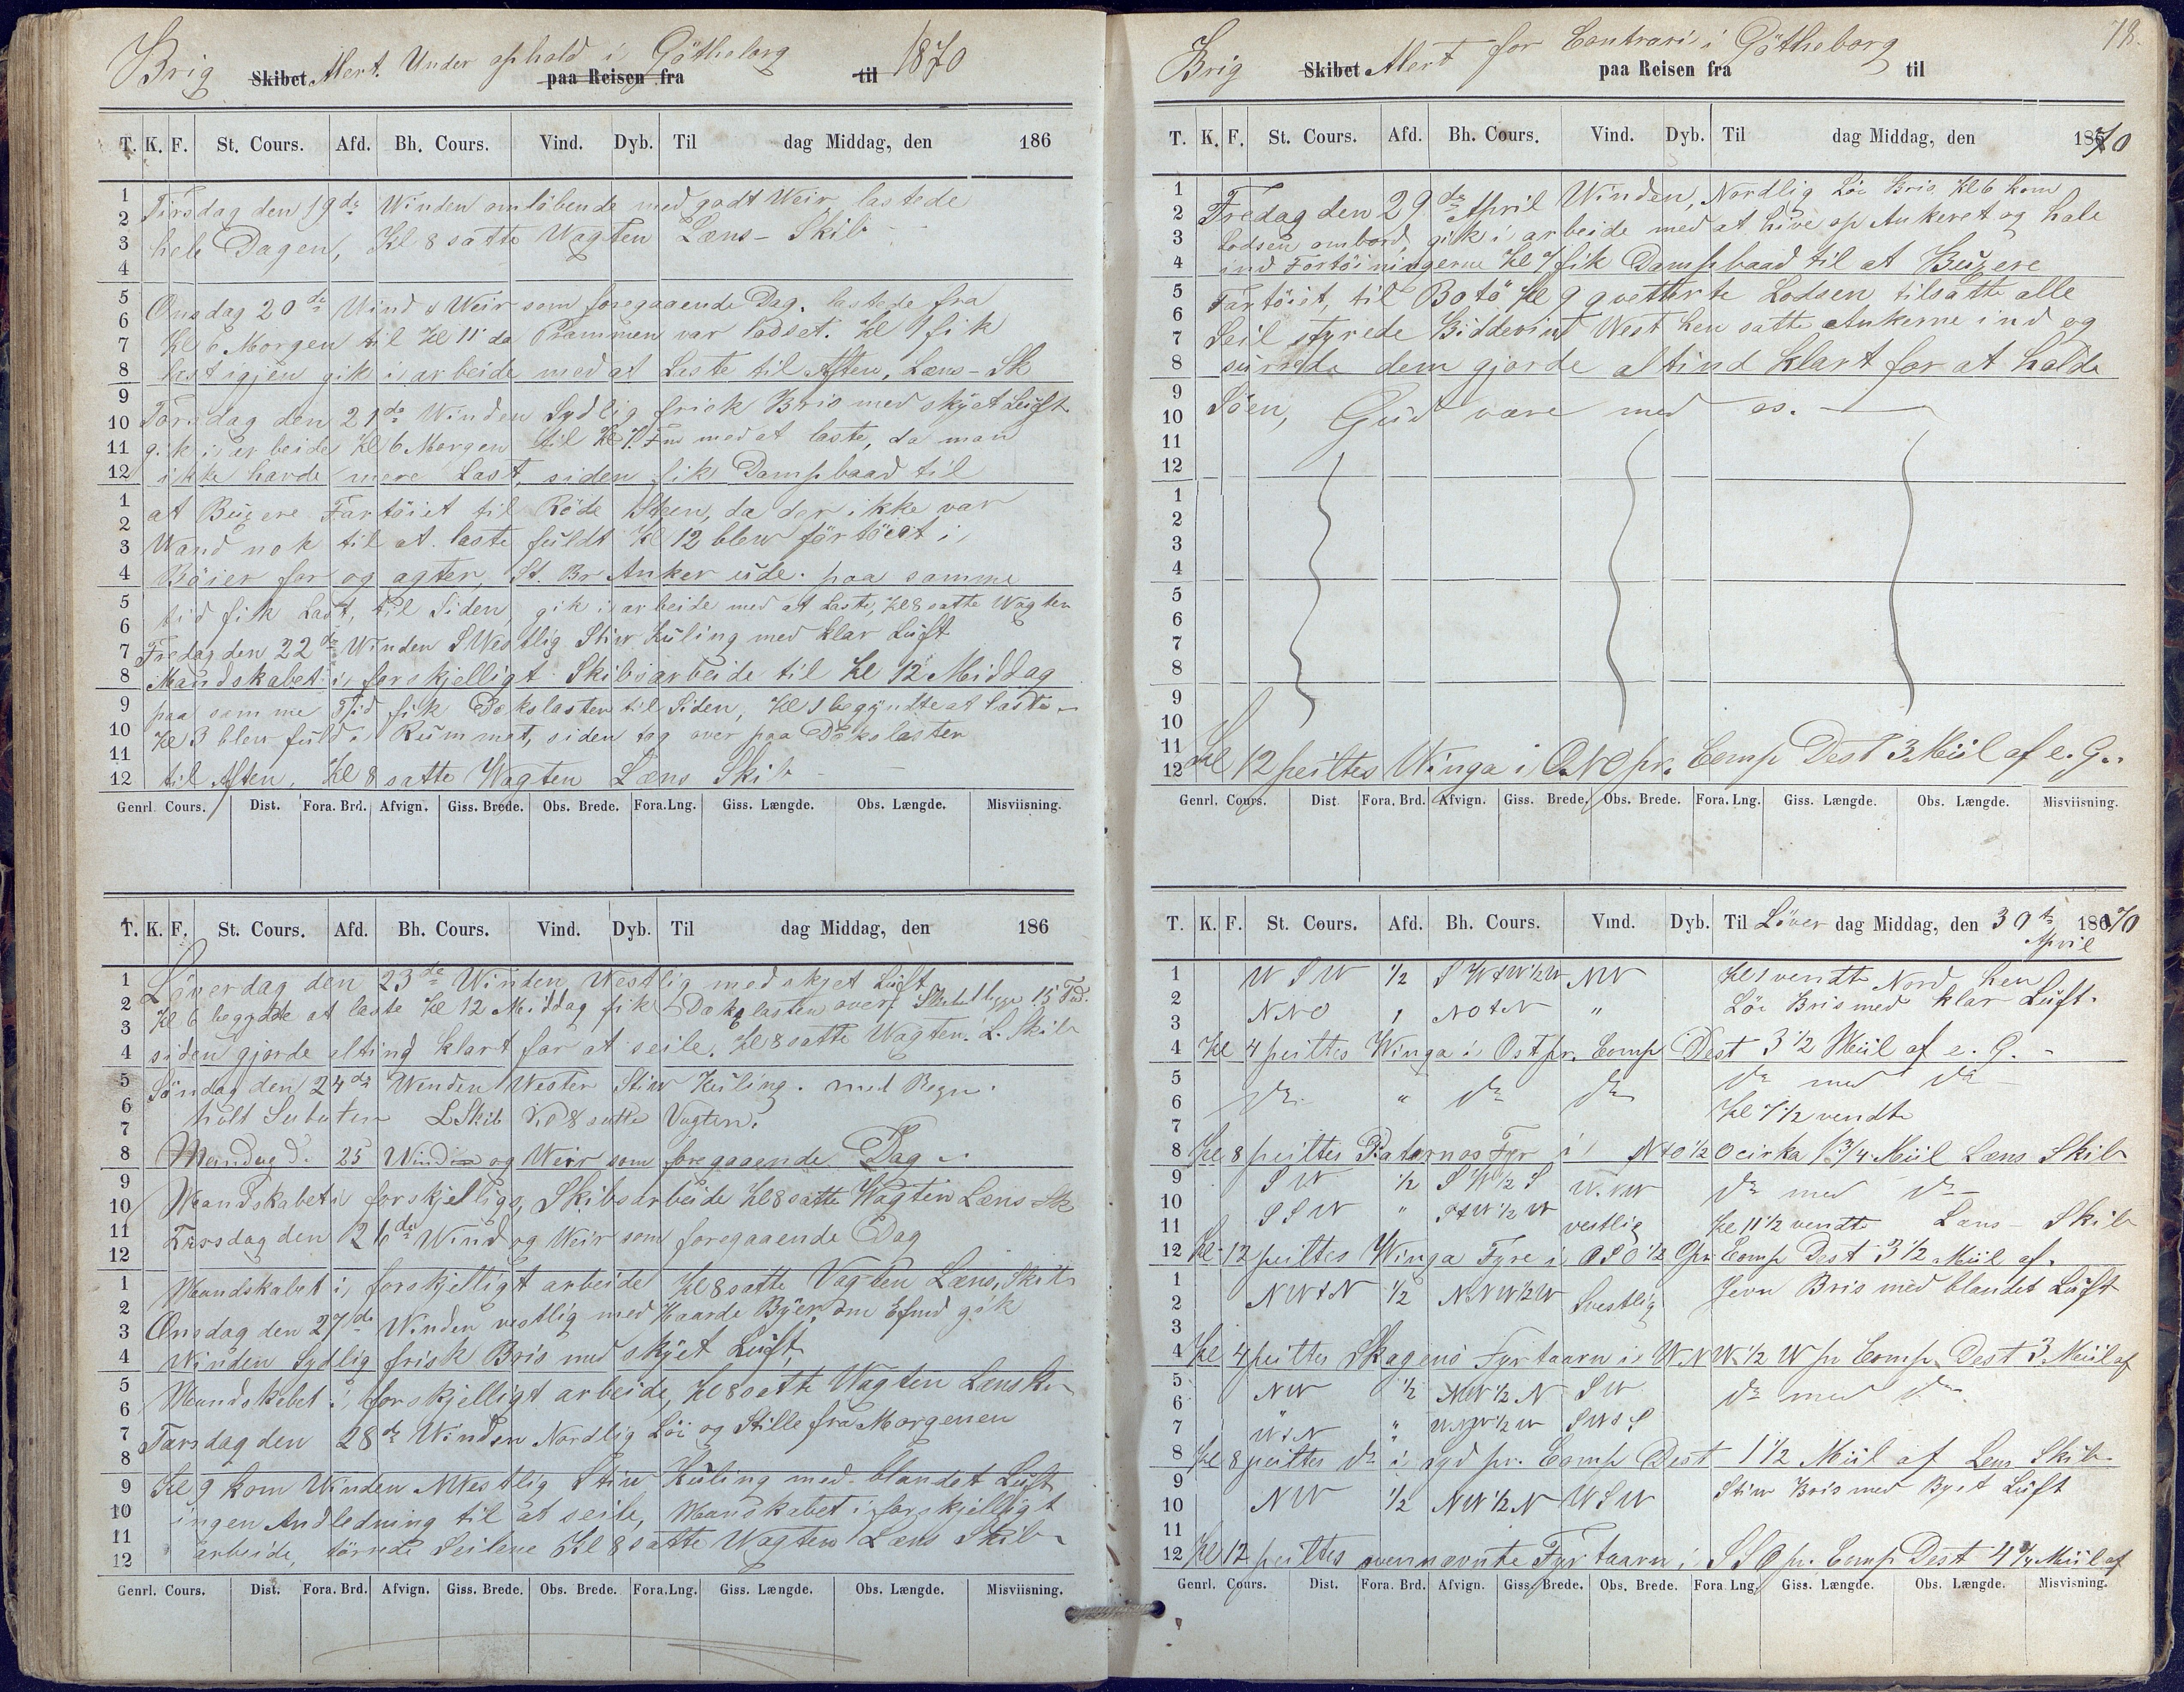 Brig Skibet Alert. Under ophold i Götheborg paa Reisen fra til 1870
T. K. F. St. Cours. Afd. Bh. Cours. Vind. Dyb. Til dag Middag, den 186
1 Tirsdag den 19de Winden omløbende med godt Weir, lastede
2
3 hele Dagen, Kl 8 satte Wagten Læns-Skib
4
5 Onsdag 20de Wind & Weir som foregaaende Dag. lastede fra
6 Kl 6 Morgen til Kl 11 da Prammen var lodset. Kl 1 fik
7
8 Last igjen gik i arbeide med at Laste til Aften, Læns-Sk
9
10 Torsdag den 21de Winden Sydlig frisk Bris med skyet Luft
11 gik i arbeide Kl 6 Morgen til Kl Fm med at laste, da man
12 ikke havde mere Last, siden fik Dampbaad til
1 at Bugsere Fartöiet til Röde Steen, da der ikke var
2
3 Wand nok til at laste fuldt Kl 12 blev förtöiet i
4 Böier for og agter, St. Br Anker ude. paa samme
5 tid fik Last, til Siden, gik i arbeide med at Laste, Kl 8 satte Wagten
6
7 Fredag den 22de Winden SWestlig Stiv Kuling med klar Luft
8 Mandskabet i forskjelligt Skibsarbeide til Kl 12 Middag
9 paa samme Tid fik Dækslasten til Siden, Kl 1 begyndte at laste
10 Kl 3 blev fuld i Rummet, siden tog over paa Dækslasten
11
12 til Aften, Kl 8 satte Wagten Læns Skib
Genrl. Cours. Dist. Fora. Brd. Afvign. Giss. Brede. Obs. Brede. Fora. Lng. Giss. Længde. Obs. Længde. Misviisning.
T. K. F. St. Cours. Afd. Bh. Cours. Vind. Dyb. Til dag Middag, den 186
1 Löverdag den 23de Winden Westlig med skyet Luft
2 Kl 6 begyndte at laste Kl 12 Middag fik Dækslasten over, Skibet ligger 15 Fod.
3
4 siden gjorde alting klart for at seile. Kl 8 satte Wagten. L. Skib
5 Söndag den 24de Winden Wester Stiv Kuling. med Regn.
6 holt L Skib Kl 8 satte Vagten.
7
8 Mandag d. 25 Winden og Weir som foregaaende Dag
9
10 Mandskabet i forskjellige, Skibsarbeide Kl 8 satte Wagten Læns Sk
11 Tirsdag den 26de Wind og Weir som foregaaende Dag
12
1 Mandskabet i, forskjelligt arbeide Kl 8 satte Vagten Læns. Skib
2
3 Onsdag den 27de Winden vestlig med Haarde Byer, om Efmd gik
4 Winden Sydlig frisk Bris med skyet Luft,
5
6 Mandskabet i, forskjelligt arbeide, Kl 8 satte Wagten Læns Sk
7 Torsdag den 28de Winden Nordlig Löi og Stille fra Morgenen
8
9 Kl 9 kom Winden NWestlig Stiv Kuling med blandet Luft
10 ingen Andledning til at seile, Mandskabet i forskjelligt
11
12 arbeide, törrede Seilene Kl 8 satte Wagten Læns Skib
Genrl. Cours. Dist. Fora. Brd. Afvign. Giss. Brede. Obs. Brede. Fora. Lng. Giss. Længde. Obs. Længde. Misviisning.
78.
Brig Skibet Alert for Contrari i Götheborg paa Reisen fra til
T. K. F. St. Cours. Afd. Bh. Cours. Vind. Dyb. Til dag Middag, den 1870
1 Fredag den 29de April Winden, Nordlig Löi Bris Kl 6 kom
2
3 Lodsen ombord, gik i arbeide med at hive op Ankeret og hale
4 ind Fortöiningerne Kl 7 fik Dampbaad til at Bugsere
5 Fartöiet, til Botö Kl 9 qvitterte Lodsen tilsatte alle
6
7 Seil styrede Biddevind West hen satte Ankerne ind og
8 surrede dem gjorde altind klart for at holde
9
10 Söen, Gud være med os.
11
12
1
2
3
4
5
6
7
8
9
10
11
12 Kl 12 peiltes Winga i ONO pr. Comp Dest 3 Miil af e. G.
Genrl. Cours. Dist. Fora. Brd. Afvign. Giss. Brede. Obs. Brede. Fora. Lng. Giss. Længde. Obs. Længde. Misviisning.
T. K. F. St. Cours. Afd. Bh. Cours. Vind. Dyb. Til Löver dag Middag, den 30te April 1870
1 WSW 1/2 SWtW1/2W NW Kl 1 vendte Nord hen
2 NNO " NOtN " Löi Bris med klar Luft.
3
4 Kl 4 peiltes Winga i Ost pr. Comp Dest 3 1/2 Miil af e. G.
5 do " do do do med do
6 Kl 7 1/2 vendte
7
8 Kl 8 peiltes Paternos Fyr i NtO1/2O cirka 1 3/4 Miil Læns Skib
9 SW 1/2 SW1/2S W.NW do med do
10 SSW " StW1/2W vestlig Kl 11 1/2 vendte Læns Skib
11
12 Kl 12 peiltes Winga Fyre i OSO1/2O pr. Comp Dest 3 1/2 Miil af.
1 NWtN 1/2 NNW1/2W Svestlig Jevn Bris med blandet Luft
2
3
4 Kl 4 peiltes Skagens Fyrtaarn i WNW1/2W pr Comp. Dest 3 Miil af
5 NW 1/2 NW1/2N SW do med do
6
7 WtN " WNW1/2W SWtS
8 Kl 8 peiltes do i syd pr. Comp Dest 1 1/2 Miil af Lens Skib
9 NW 1/2 NW1/2N WSW Stiv Bris med Byet Luft
10
11
12 Kl 12 peiltes ovennævnte Fyrtaarn i SSO pr. Comp Dest 4 3/4 Miil af
Genrl. Cours. Dist. Fora. Brd. Afvign. Giss. Brede. Obs. Brede. Fora. Lng. Giss. Længde. Obs. Længde. Misvisning.